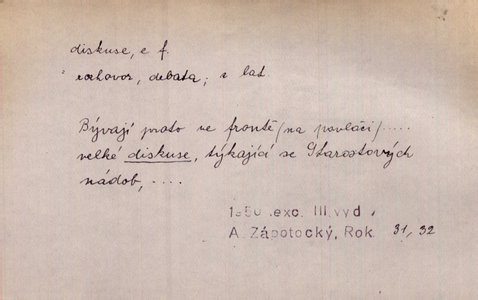 diskuse, e f.
rozhovor, debata; z lat.
Bývají proto ve frontě /na povláčí/....
velké diskuse, týkající se
nádob, ....
1950 .exc. III.vyd.
A. Zápotocký, Rok. 31, 32